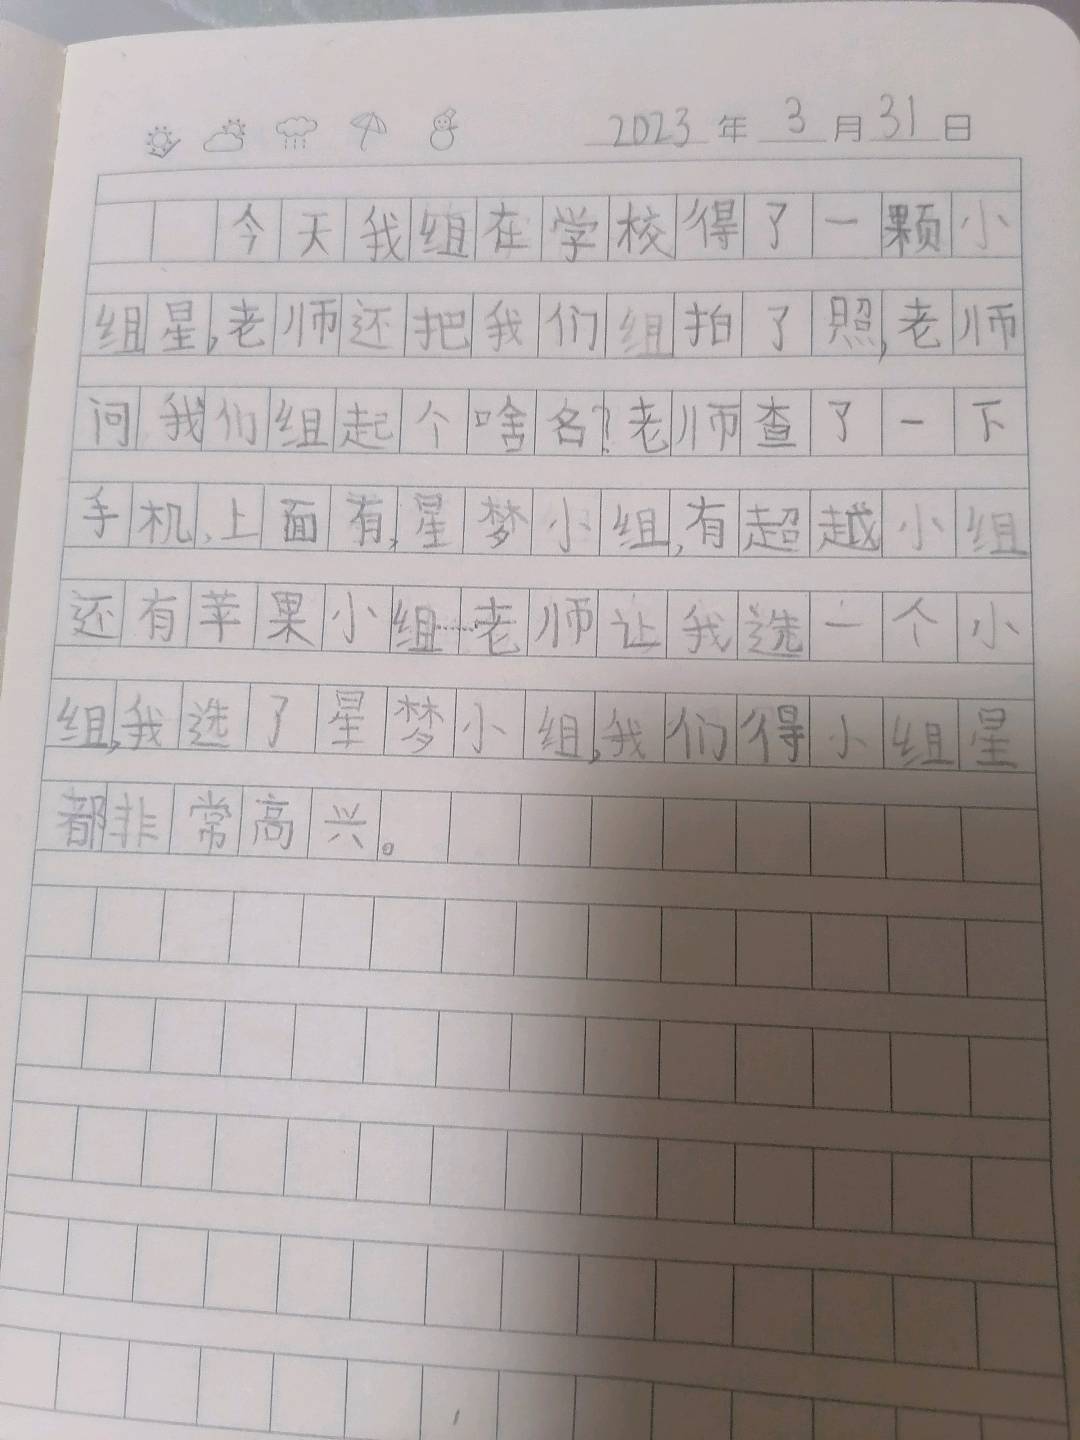 2023年3月31日
今天我组在学校得了一颗小
组星,老师还把我们组拍了照,老师
问我们组起个啥名?老师查了一下
手机、上面有,星梦小组,有超越小组
还有苹果小组……老师让我选一个小
组,我选了星梦小组,我们得小组星
都非常高兴。